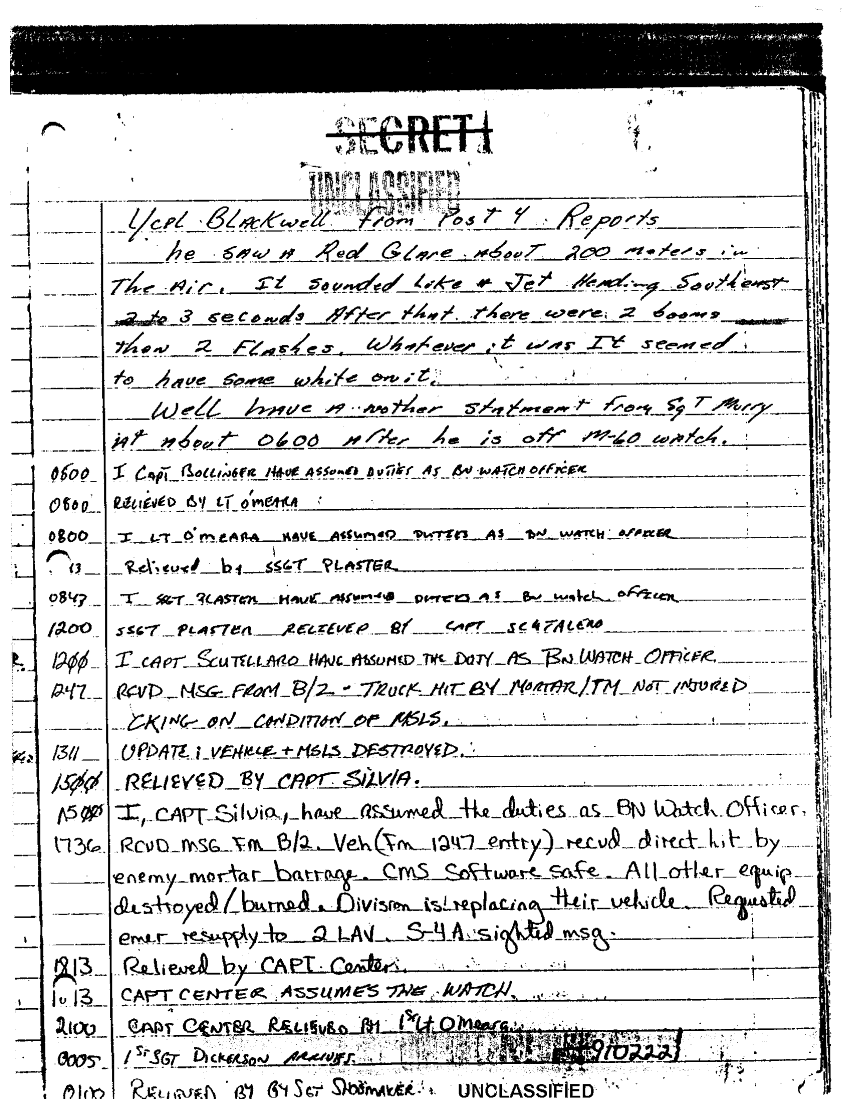 SECRET
UNCLASSIFIED
L/cpl Blackwell from Post 4 Reports
he saw a Red Glare about 200 meters in
The Air. It sounded Like a Jet Heading Southeast
2 to 3 seconds After that there were 2 booms
then 2 Flashes. Whatever it was It seemed
to have some white on it.
Well have a nother statment from Sgt Murry
at about 0600 after he is off M-60 watch.
0600 I Capt Bollinger have assumed duties as BN watch officer
0800 Relieved by Lt O'Meara
0800 I Lt O'Meara have assumed duties as BN watch officer
13 Relieved by SSGT Plaster
0843 I SSGT Plaster have assumed duties as BN watch officer
1200 SSGT Plaster relieved by Capt
1200 I Capt Scutellaro have assumed the duty as BN Watch Officer.
1247 RCVD MSG FROM B/2 - TRUCK HIT BY MORTAR/TM NOT INJURED
CKING ON CONDITION OF MSLS.
1311 UPDATE: VEHICLE + MSLS DESTROYED.
1500 RELIEVED BY CAPT SILVIA.
1500 I, CAPT Silvia, have assumed the duties as BN Watch Officer.
1736 RCVD MSG Fm B/2. Veh (Fm 1247 entry) recvd direct hit by
enemy mortar barrage. CMS Software safe. All other equip
destroyed/burned. Division is replacing their vehicle. Requested
emer resupply to 2 LAV. S-4A sighted msg.
1813 Relieved by CAPT Center.
13 CAPT CENTER ASSUMES THE WATCH.
2100 CAPT CENTER RELIEVED BY 1st Lt O'Meara
910222
0005 1st SGT Dickerson arrives.
0100 Relieved by GySgt Shoemaker.
UNCLASSIFIED